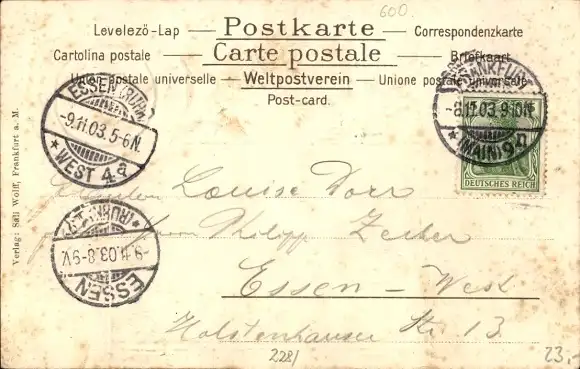 600.
Levelező-Lap — Postkarte — Correspondenzkarte
Cartolina postale — Carte postale — Briefkaart
Union postale universelle — Weltpostverein — Unione postale universelle
Post-card.
ESSEN (RUHR)
-9.11.03.5-6N.
* WEST 4a
(MAIN) 9
-8.11.03.9-10N.
DEUTSCHES REICH
Louise Dorr
Philipp Zecher
Essen - West
Holstenhauser Str. 13.
(RUHR)
-9.11.03.8-9V.
ESSEN
Verlag: Sali Wolff, Frankfurt a. M.
2281
23.-